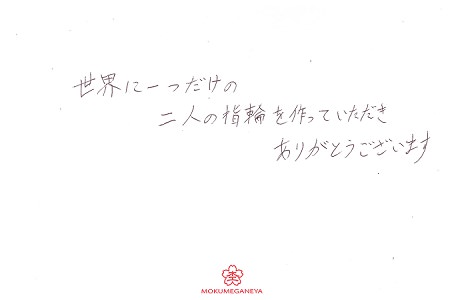 世界に一つだけの
二人の指輪を作っていただき
ありがとうございます
MOKUMEGANEYA